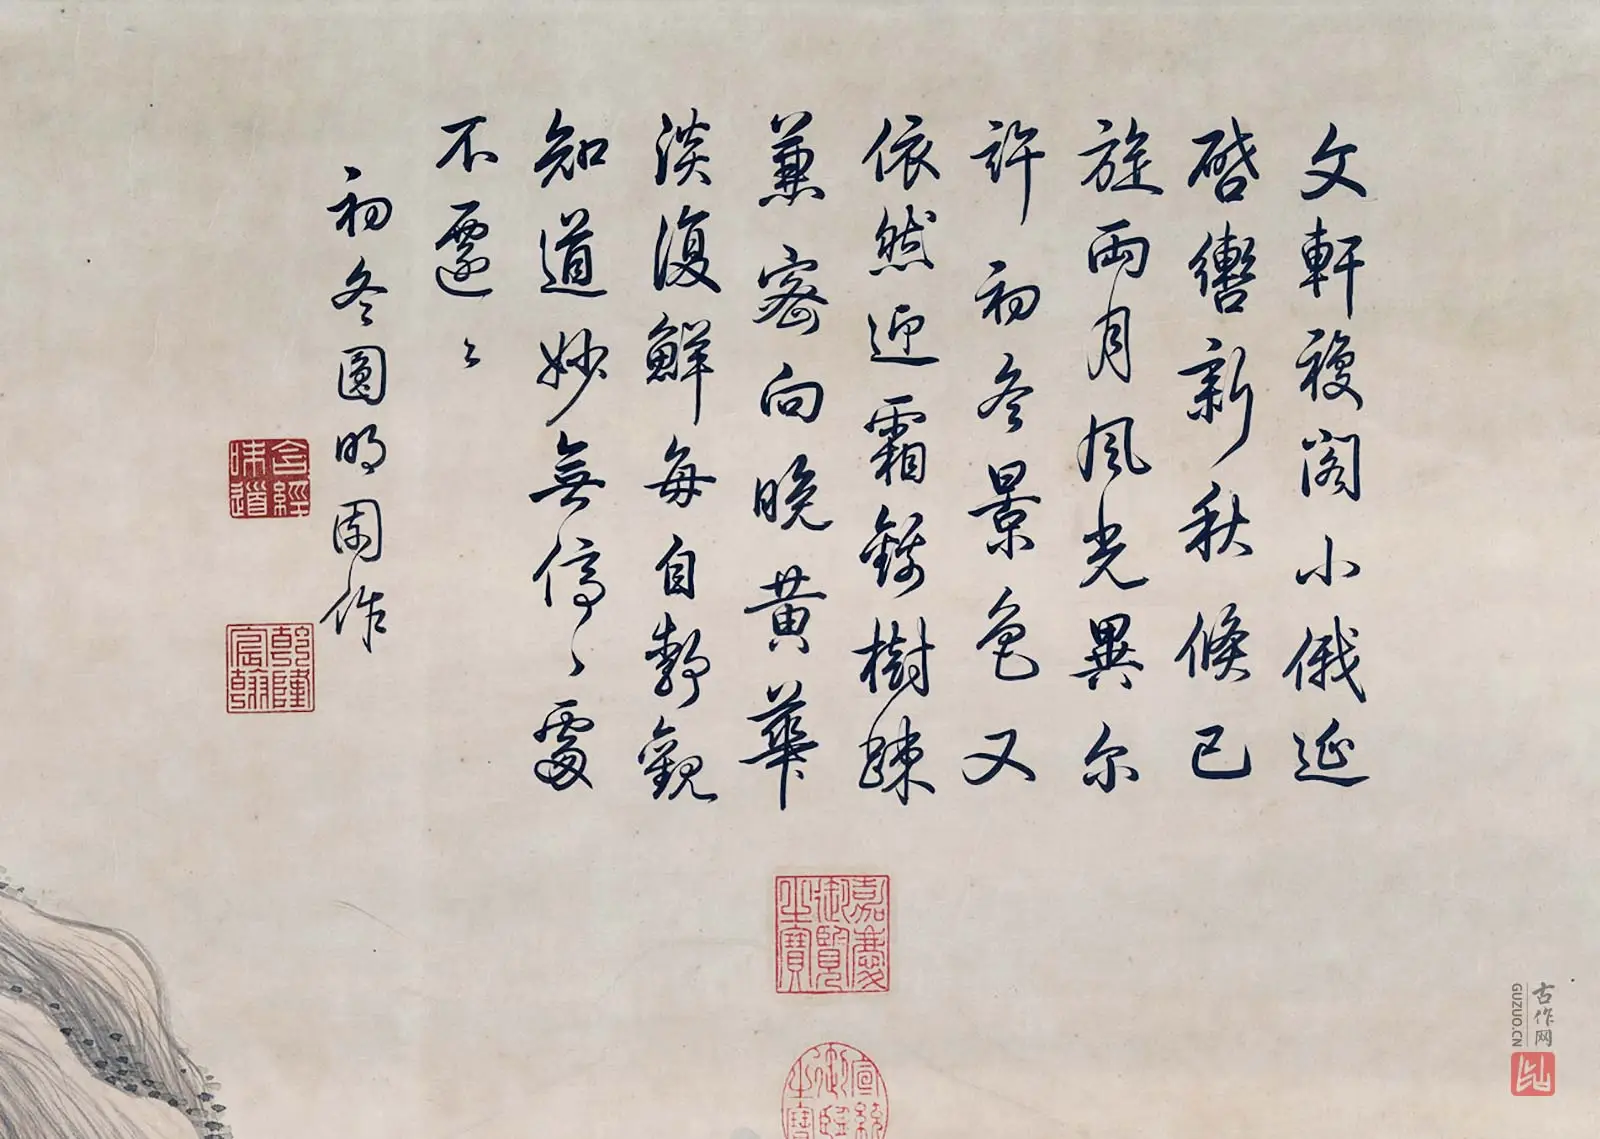 文軒複閣小俄延
啓轡新秋倏已
旋兩月風光異尔
許初冬景色又
依然迎霜錦樹疎
兼密向晚黄華
淡復鮮每自静觀
知道妙無停〻處
不遷〻
初冬圓明園作
含經味道
乾隆宸翰
嘉慶御覽之寶
宣統御覽之寶
古作网
GUZUO.CN